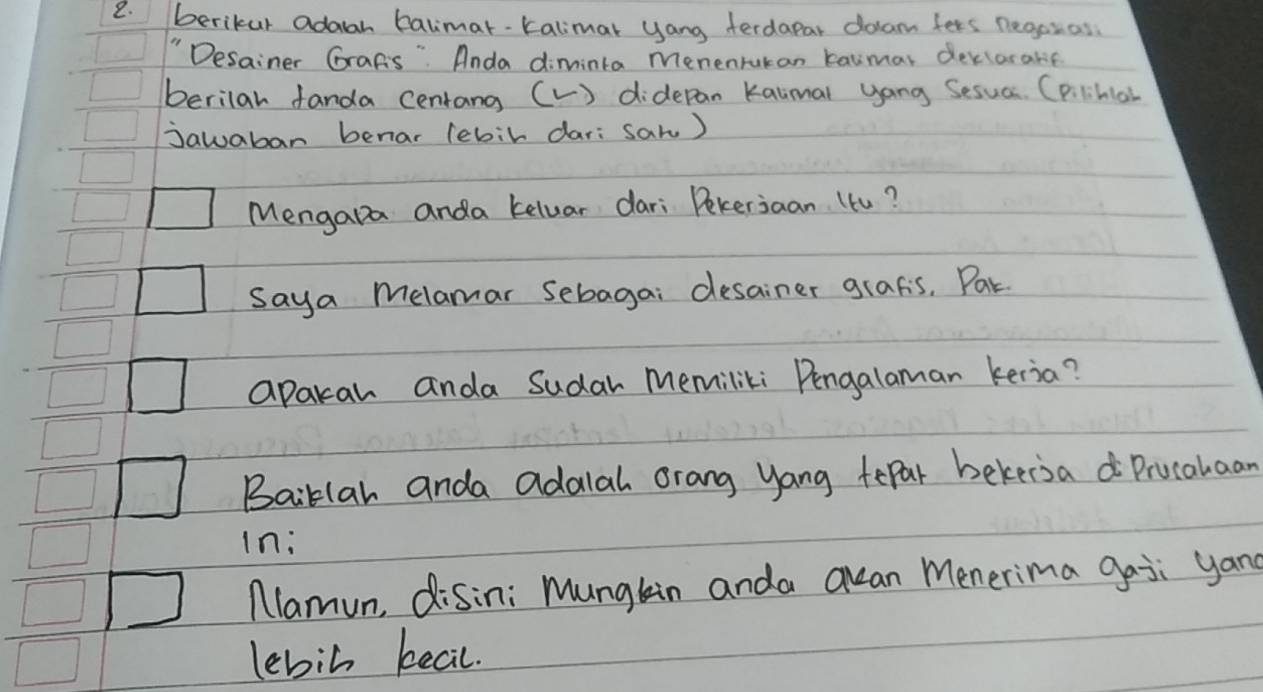 2. berikut adalah kalimat-kalimat yang terdapat dalam teks negosiasi
"Desainer Grafis". Anda diminta menentukan kalimat deklaratif
berilah tanda centang (✓) didepan kalimat yang sesuai. (Pilihlah
jawaban benar lebih dari satu)
Mengapa anda keluar dari Pekerjaan itu?
saya melamar sebagai desainer grafis, Pak.
apakah anda sudah memiliki Pengalaman kerja?
Baiklah anda adalah orang yang tepat bekerja di Prucahaan
ini
Namun, disini mungkin anda akan menerima gaji yang
lebih kecil.